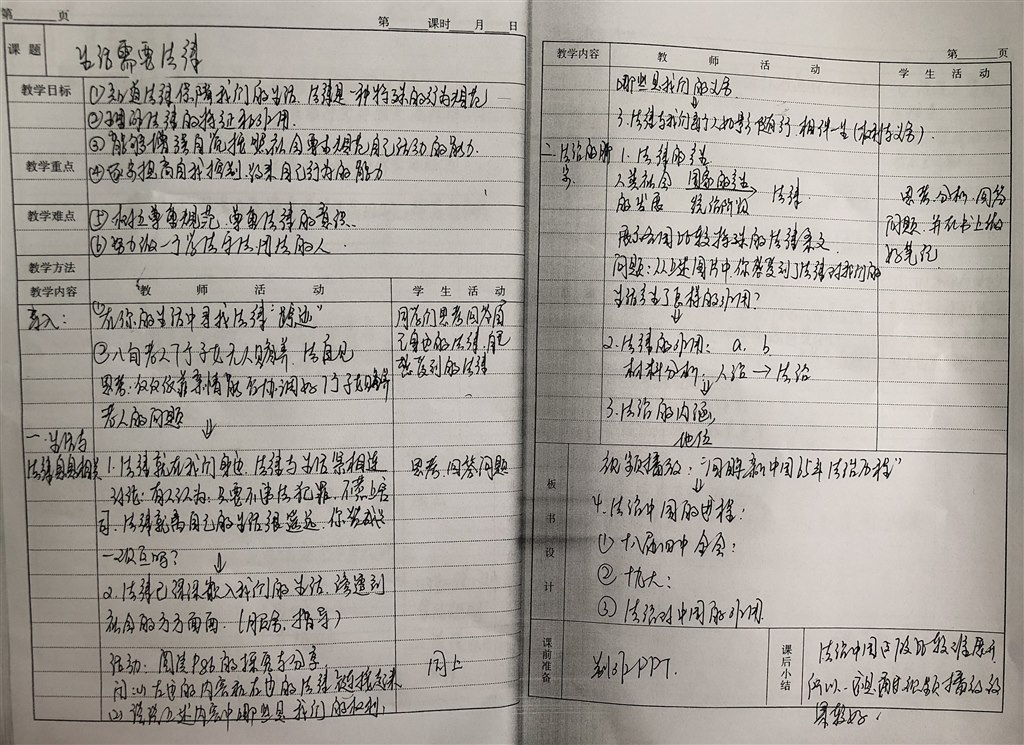 第 页
第 课时 月 日
课题 生活需要法律
教学目标 ①知道法律保障我们的生活,法律是一种特殊的行为规范
②理解法律的特征和作用.
③能够增强自觉按照社会要求规范自己活动的能力.
教学重点 ④逐步提高自我控制、约束自己行为的能力
教学难点 ⑤树立尊重规范,尊重法律的意识.
⑥努力做一个学法守法用法的人.
教学方法
教学内容 教师活动 学生活动
导入: ①在你的生活中寻找法律“踪迹” 同学们思考回答
②八旬老人7个子女无人赡养 身边的法律,
思考:仅仅依靠亲情能否协调好7个子女赡养 感受到的法律
老人的问题
一.生活与
法律息息相关 1.法律就在我们身边,法律与生活紧相连 思考.回答问题
讨论:有人认为,只要不违法犯罪、不
法律就离自己的生活很遥远.你赞成
观点吗?
2.法律已深深嵌入我们的生活.渗透到
社会的方方面面.(指导)
活动:阅读P86的探究与分享 同上
问:(1)左边的内容和右边的法律连接起来
(2)说说上述内容中哪些是我们的权利,
第 页
教学内容 教师活动 学生活动
哪些是我们的义务.
3.法律与我们每个人如影随行,相伴一生(权利与义务).
二.法治的脚步 1.法律的产生
人类社会的发展 国家的产生 统治阶级 法律
思考.分析.回答
问题.并在书上做
好笔记
展示各国比较特殊的法律条文
问题:从上述图片中你感受到了法律对我们的
生活产生了怎样的作用?
2.法律的作用: a. b.
材料分析: 人治→法治
3.法治的内涵,
地位
板书设计
视频播放:“回眸新中国65年法治历程”
4.法治中国的进程:
①十八届四中全会:
②十九大:
③法治对中国的作用.
课前准备 制作PPT.
课后小结 法治中国这段比较难展开
所以视频播放效
果较好.